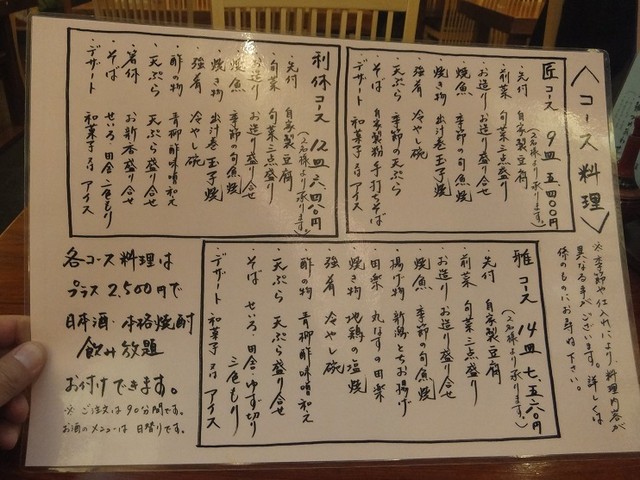 〈コース料理〉
※季節や仕入れにより、料理内容が
異なる事がございます。詳しくは
係のものにお尋ね下さい。
匠コース 9皿 五、四〇〇円
(2名様より承ります。)
・先付 自家製豆腐
・前菜 旬菜三点盛り
・お造り お造り盛り合せ
・焼魚 季節の旬魚焼
・焼き物 出汁巻玉子焼
・強肴 冷やし碗
・天ぷら 季節の天ぷら
・そば 自家製粉手打ちそば
・デザート 和菓子又はアイス
利休コース 12皿 六、四八〇円
(2名様より承ります。)
・先付 自家製豆腐
・旬菜 旬菜三点盛り
・お造り お造り盛り合せ
・焼魚 季節の旬魚焼
・焼き物 出汁巻玉子焼
・強肴 冷やし碗
・酢の物 青柳酢味噌和え
・天ぷら 天ぷら盛り合せ
・箸休 お新香盛り合せ
・そば せいろ・田舎 二色もり
・デザート 和菓子又はアイス
雅コース 14皿 七、五六〇円
(2名様より承ります。)
・先付 自家製豆腐
・前菜 旬菜三点盛り
・お造り お造り盛り合せ
・焼魚 季節の旬魚焼
・揚げ物 新潟とちお揚げ
・田楽 丸なすの田楽
・焼き物 地鶏の塩焼
・強肴 冷やし碗
・酢の物 青柳酢味噌和え
・天ぷら 天ぷら盛り合せ
・そば せいろ・田舎・ゆず切り
三色もり
・デザート 和菓子又はアイス
各コース料理は
プラス2,500円で
日本酒・本格焼酎
飲み放題
お付けできます。
※ご注文は90分間です。
お酒のメニューは日替りです。